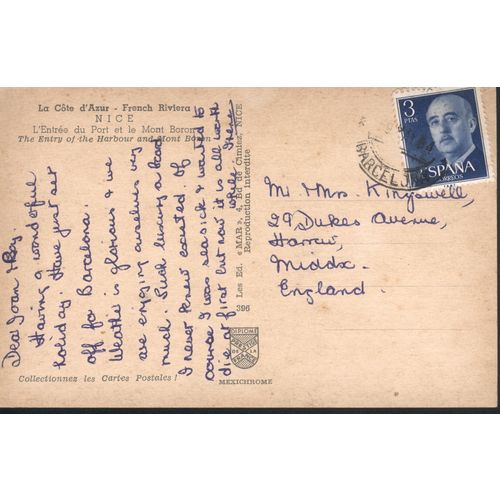 La Côte d'Azur - French Riviera
NICE
L'Entrée du Port et le Mont Boron
The Entry of the Harbour and Mont Boron
Dear Joan & Reg.
Having a wonderful
holiday. Have just set
off for Barcelona.
Weather is glorious & we
are enjoying ourselves very
much. Such luxury on board
I never knew existed. Of
course I was seasick & wanted to
die at first but now it is all worth
while Irene
Collectionnez les Cartes Postales !
396 Les Ed. «MAR», 4, Bd de Cimiez, NICE
Reproduction Interdite
DIPLOME
PRESTIGE
DE LA
FRANCE
MEXICHROME
3
PTAS
ESPAÑA
CORREOS
BARCELONA
Mr Mrs Kingswell,
29 Dukes Avenue,
Harrow,
Middx.
England.